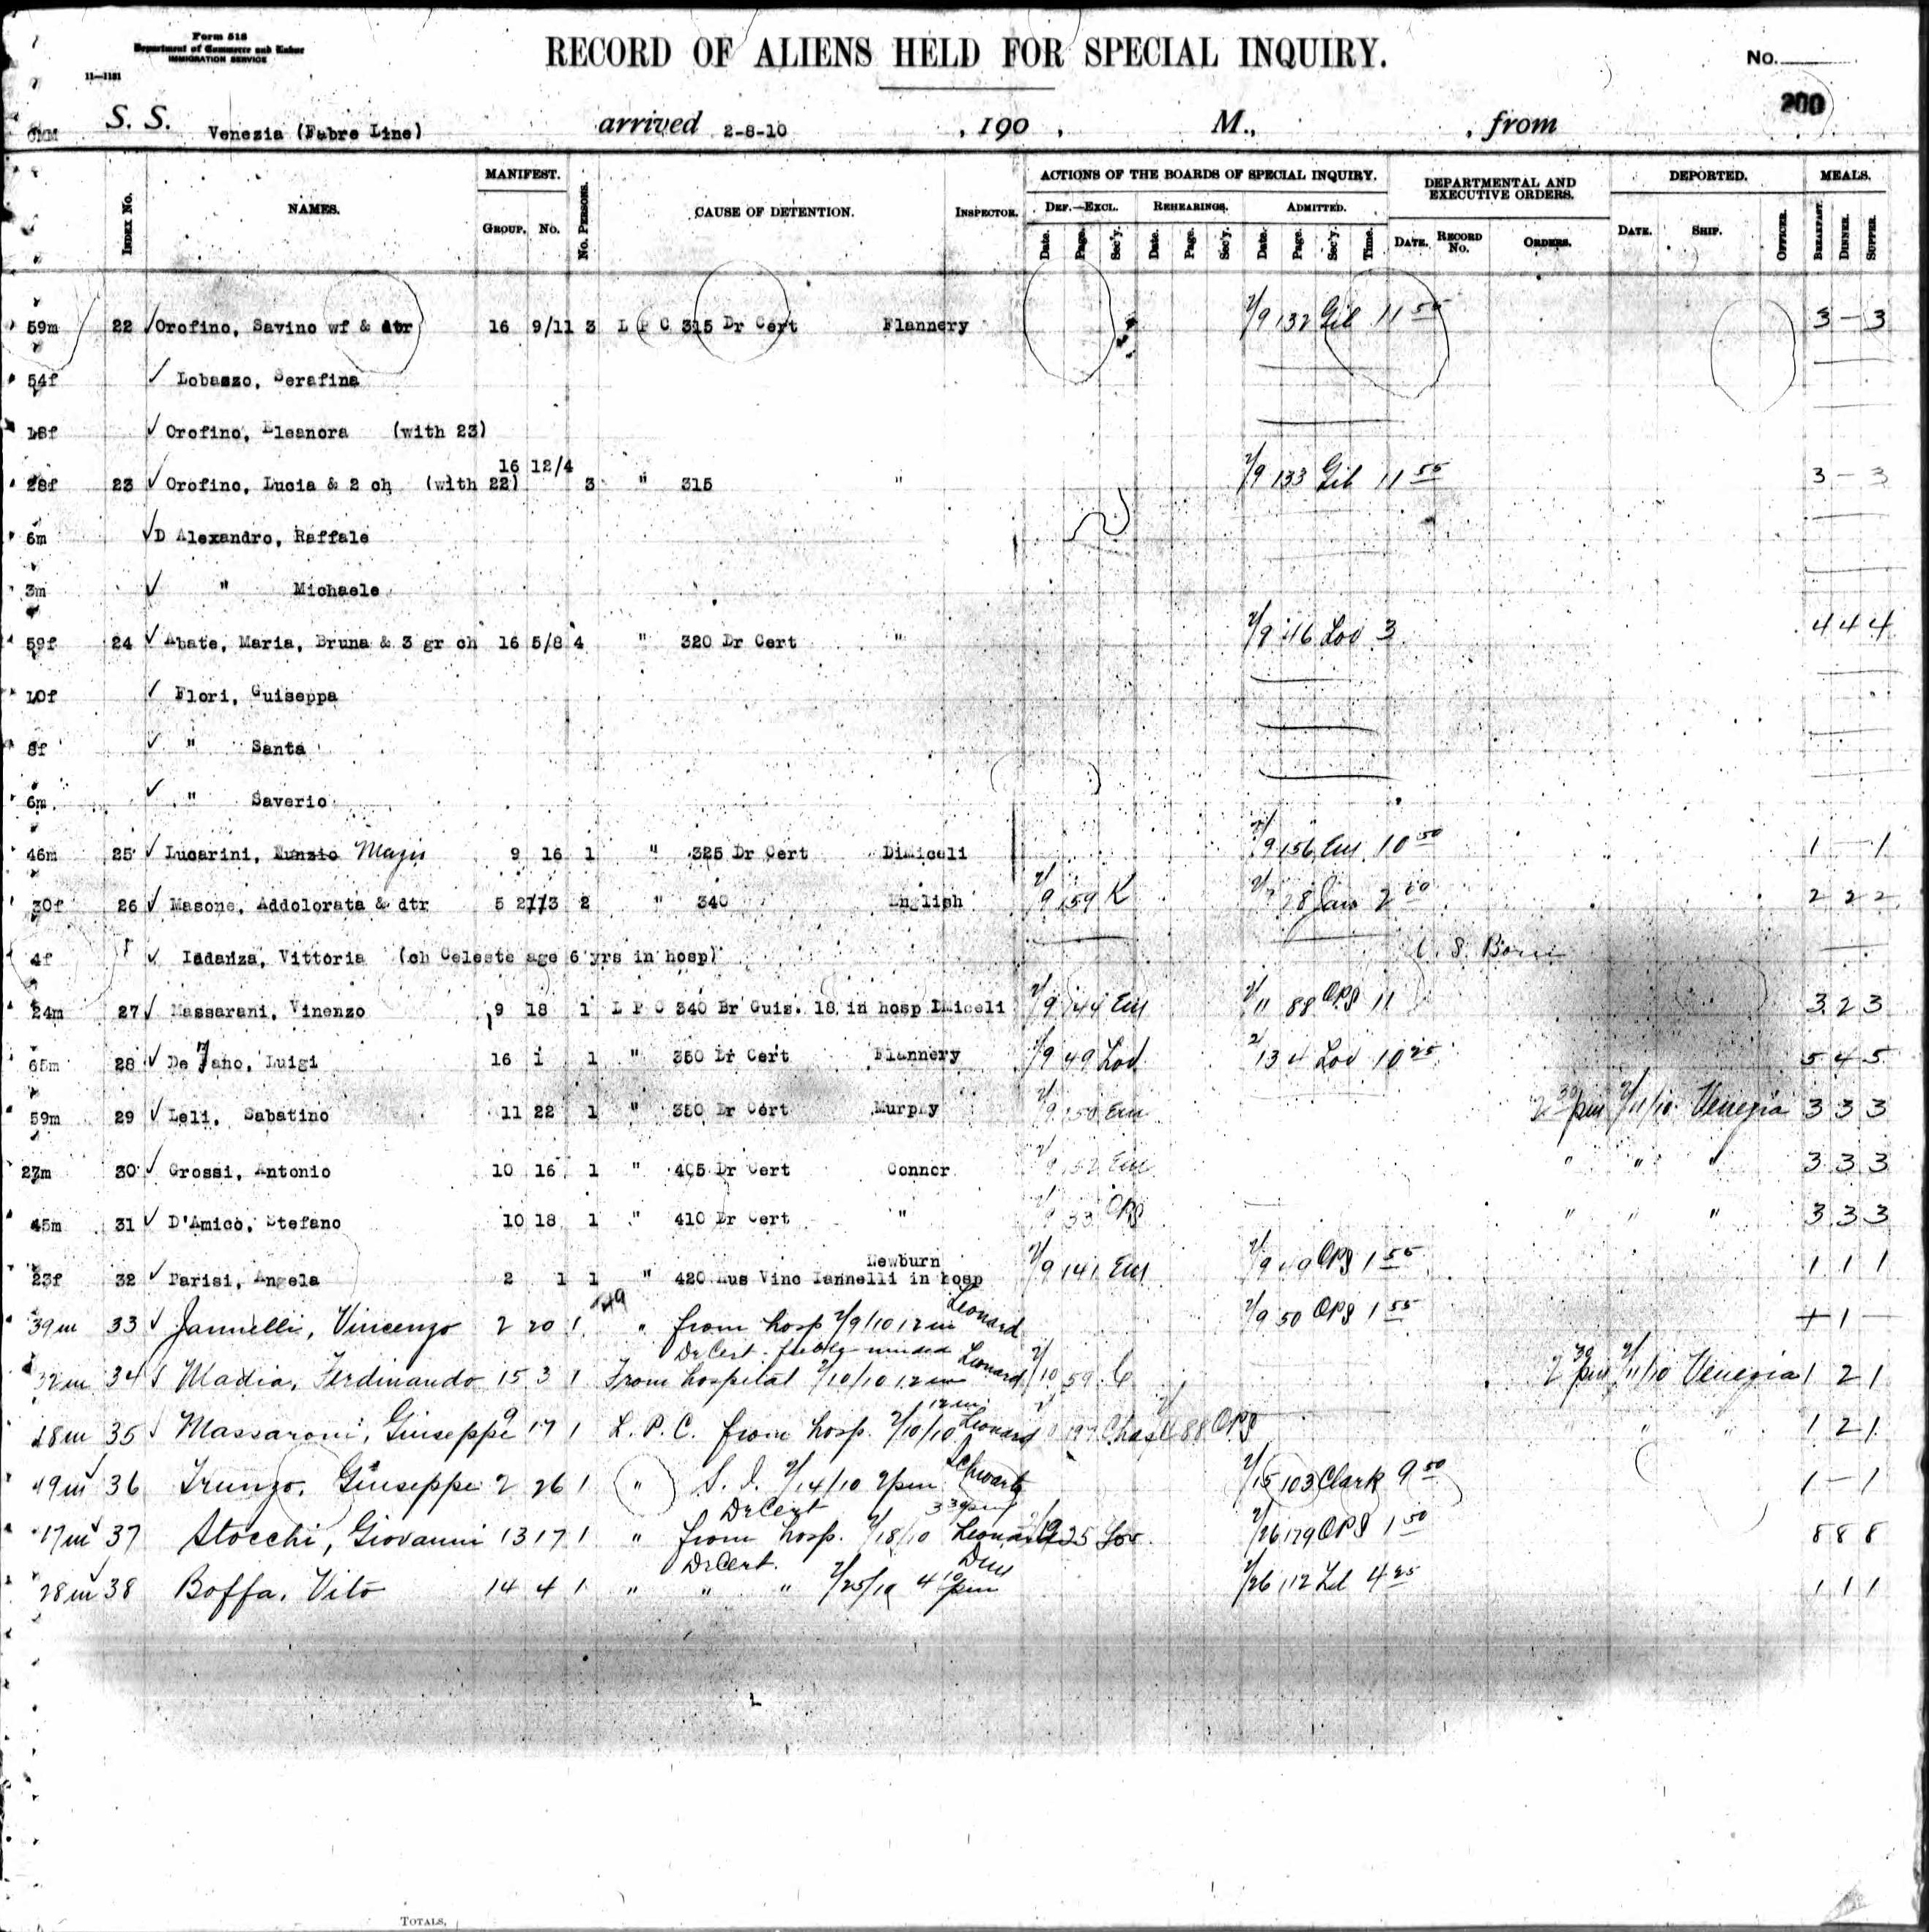 Form 518
Department of Commerce and Labor
IMMIGRATION SERVICE
11—1181
RECORD OF ALIENS HELD FOR SPECIAL INQUIRY.
No.
200
S. S. Venezia (Fabre Line) arrived 2-8-10 , 190 , M., , from
INDEX No. NAMES. MANIFEST. GROUP. No. No. PERSONS. CAUSE OF DETENTION. INSPECTOR. ACTIONS OF THE BOARDS OF SPECIAL INQUIRY. DEF.—EXCL. Date. Page. Sec'y. REHEARINGS. Date. Page. Sec'y. ADMITTED. Date. Page. Sec'y. Time. DEPARTMENTAL AND EXECUTIVE ORDERS. DATE. RECORD No. ORDERS. DEPORTED. DATE. SHIP. OFFICER. MEALS. BREAKFAST. DINNER. SUPPER.
59m 22 Orofino, Savino wf & dtr 16 9/11 3 L P C 315 Dr Cert Flannery 2/9 132 Gil 11 55 3 — 3
54f Lobazzo, Serafina
18f Orofino, Eleanora (with 23)
28f 23 Orofino, Lucia & 2 ch (with 22) 16 12/4 3 " 315 " 2/9 133 Gil 11 55 3 — 3
6m D Alexandro, Raffale
3m " Michaele
59f 24 Abate, Maria, Bruna & 3 gr ch 16 5/8 4 " 320 Dr Cert " 2/9 46 Lov 3 4 4 4
10f Flori, Guiseppa
8f " Santa
6m " Saverio
46m 25 Lucarini, Nunzio 9 16 1 " 325 Dr Cert DiMiceli 2/9 156 Em 10 50 1 — 1
30f 26 Masone, Addolorata & dtr 5 2 " 340 English 2/9 159 K 2 2 2
4f Iadanza, Vittoria (ch Celeste age 6 yrs in hosp)
24m 27 Massarani, Vinenzo 9 18 1 L P C 340 Br Guis. 18 in hosp 2/9 144 Em 2/11 88 OPS 11 3 2 3
65m 28 De ano, Luigi 16 1 1 " 350 Dr Cert Flannery 2/9 49 Lov 2/13 4 Lov 10 25 5 4 5
59m 29 Leli, Sabatino 11 22 1 " 350 Dr Cert Murphy 2/9 150 Em 2 30 pm 2/11/10 Venezia 3 3 3
27m 30 Grossi, Antonio 10 16 1 " 405 Dr Cert Connor 2/9 152 Em " " " 3 3 3
45m 31 D'Amico, Stefano 10 18 1 " 410 Dr Cert " 2/9 33 OPS " " " 3 3 3
23f 32 Parisi, Angela 2 1 1 " 420 Hus Vinc Iannelli in hosp Newburn 2/9 141 Em 2/9 49 OPS 1 55 1 1 1
39m 33 Jannelli, Vincenzo 2 20 1 " from hosp 2/9/10 12 m Leonard 2/9 50 OPS 1 55 1
32m 34 Madia, Ferdinando 15 3 1 Dr Cert - feeble minded From hospital 2/10/10 12 m Leonard 2/10 59 C 2 30 pm 2/11/10 Venezia 1 2 1
18m 35 Massaroni, Giuseppe 9 17 1 L. P. C. from hosp. 2/10/10 12 m Leonard 88 OPS " " 1 2 1
19m 36 Trunzo, Giuseppe 2 26 1 " S. I. 2/14/10 2pm Schwartz 2/15 103 Clark 9 50 1 — 1
17m 37 Stocchi, Giovanni 13 17 1 " Dr Cert from hosp. 2/18/10 3 30 pm Leonard 2/19 25 Lov 2/26 179 OPS 1 50 8 8 8
28m 38 Boffa, Vito 14 4 1 " Dr Cert. " " 2/25/10 4 10 pm 2/26 112 4 25 1 1 1
TOTALS,